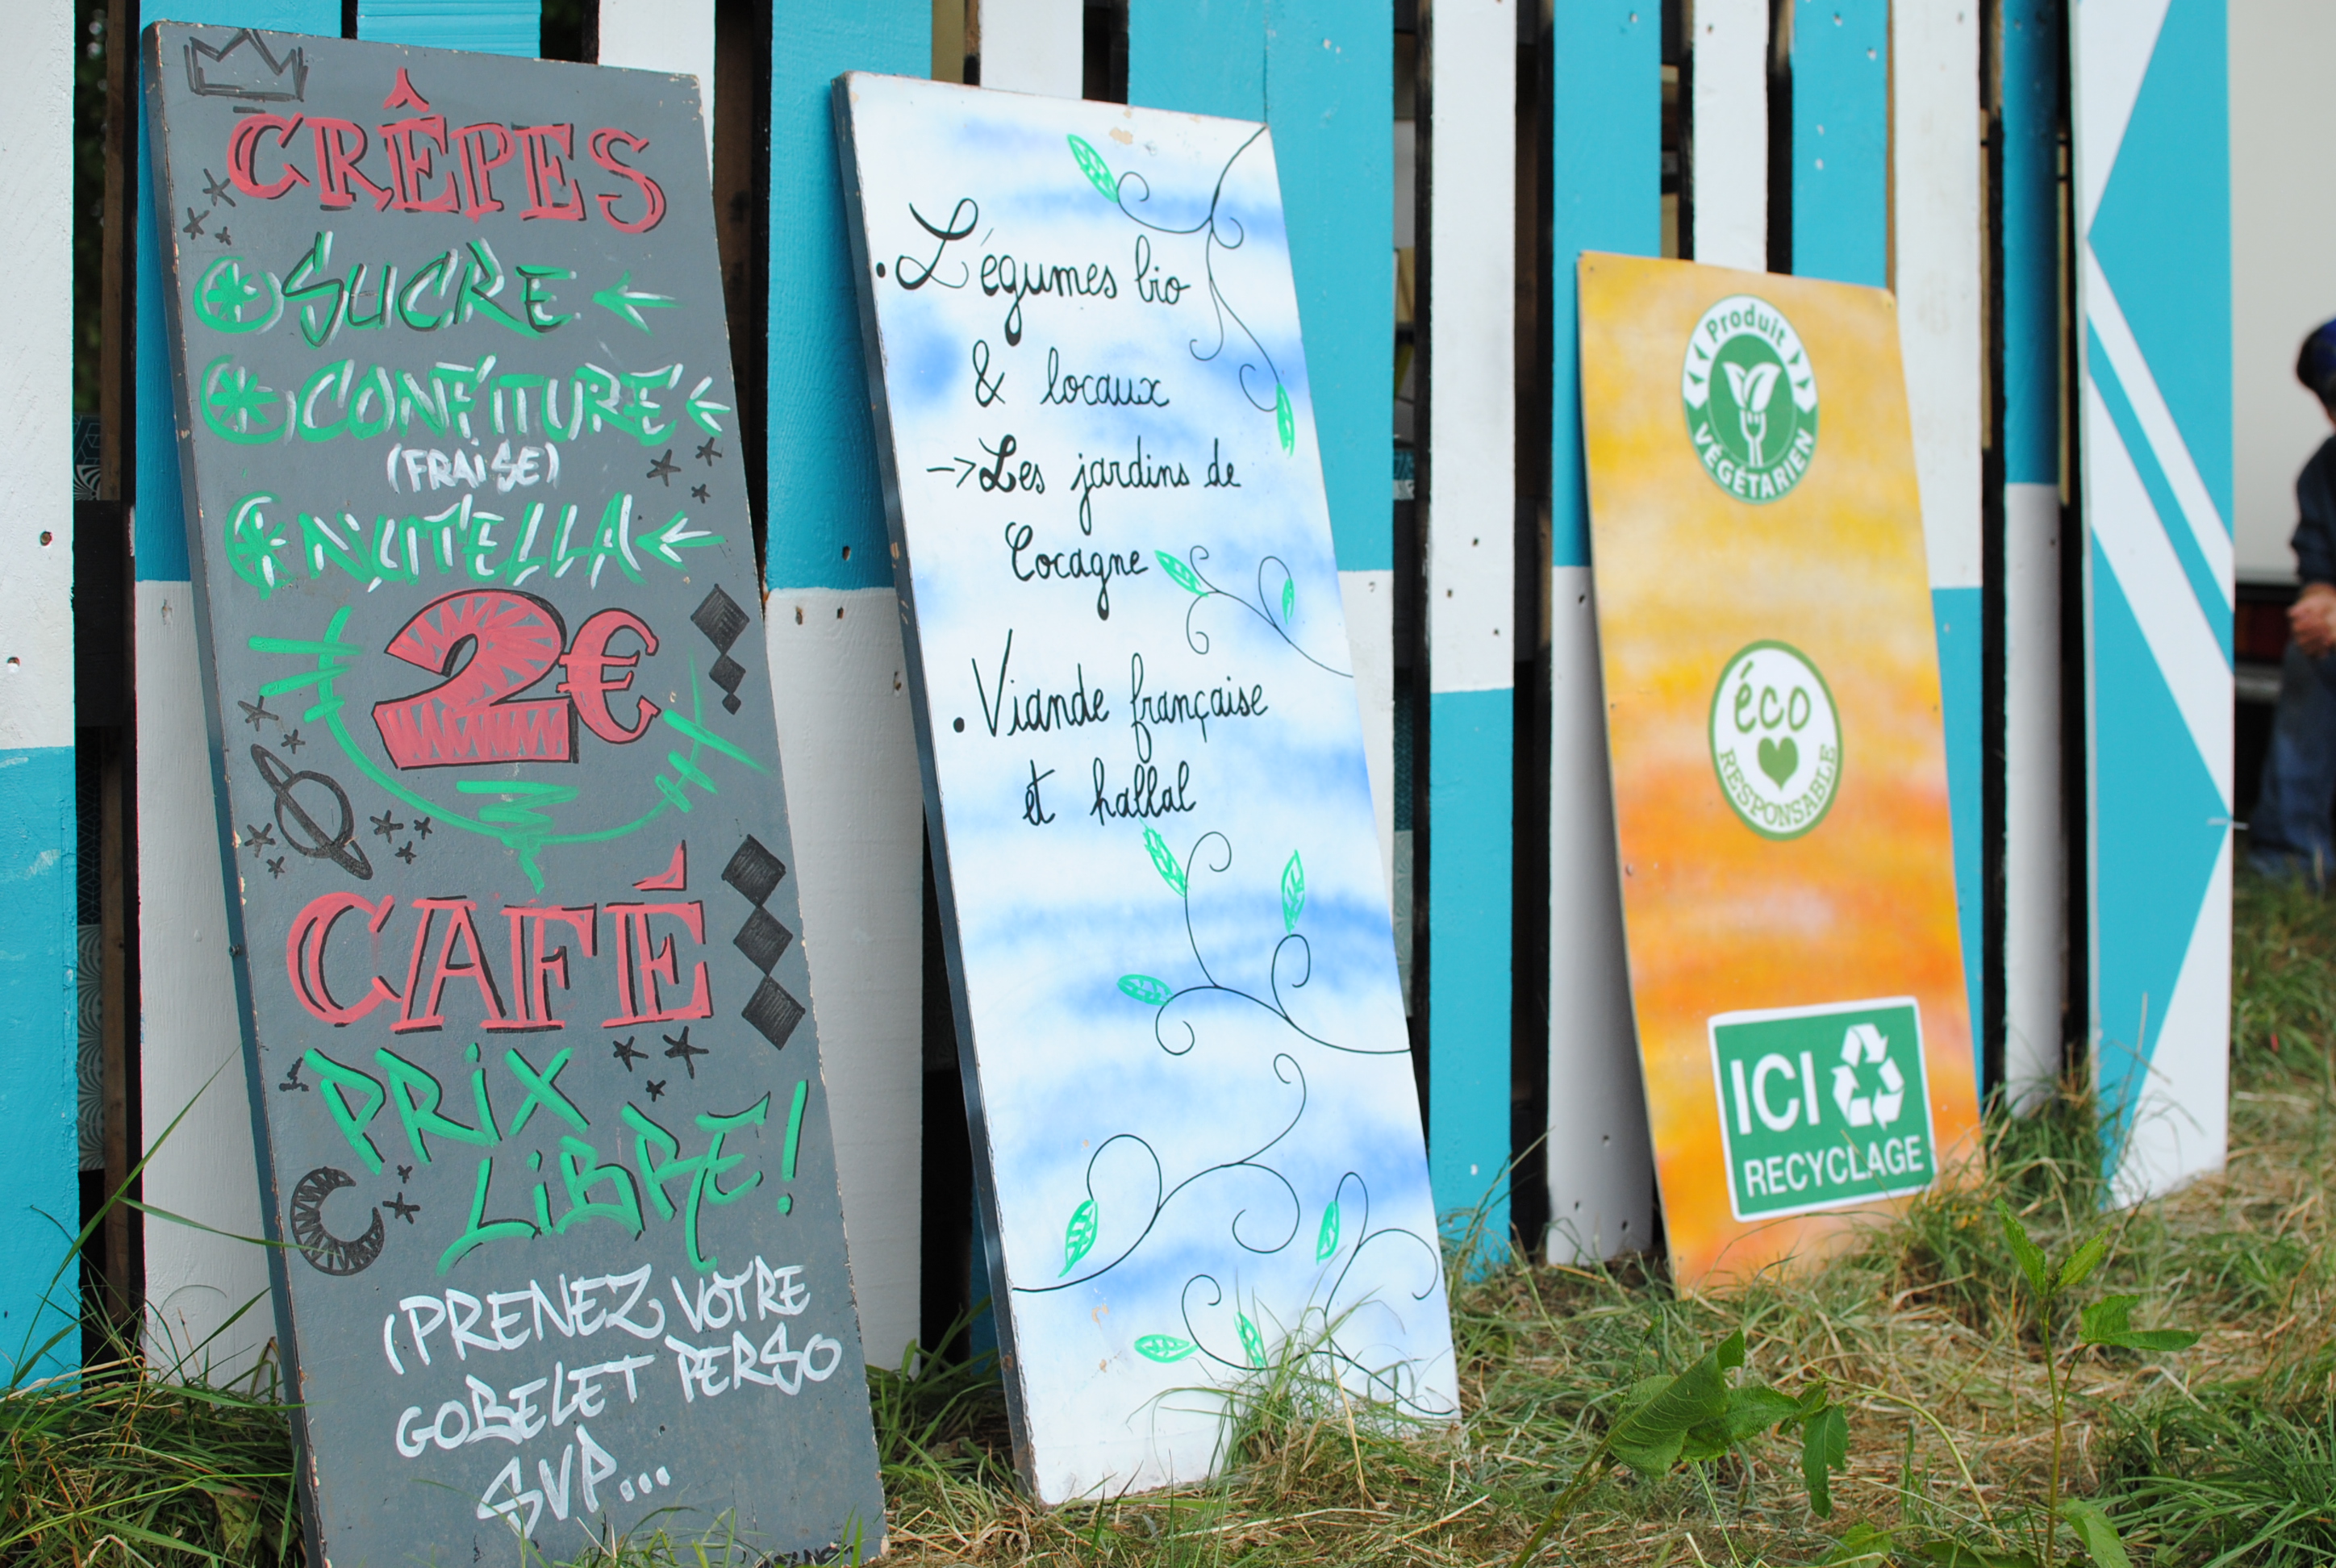 CRÊPES
SUCRE
CONFITURE
(FRAISE)
NUTELLA
2€
CAFÉ
PRIX
LIBRE!
(PRENEZ VOTRE
GOBELET PERSO
SVP...
. Légumes bio
& locaux
-> Les jardins de
Cocagne
. Viande française
et hallal
Produit
VÉGÉTARIEN
éco
RESPONSABLE
ICI
RECYCLAGE